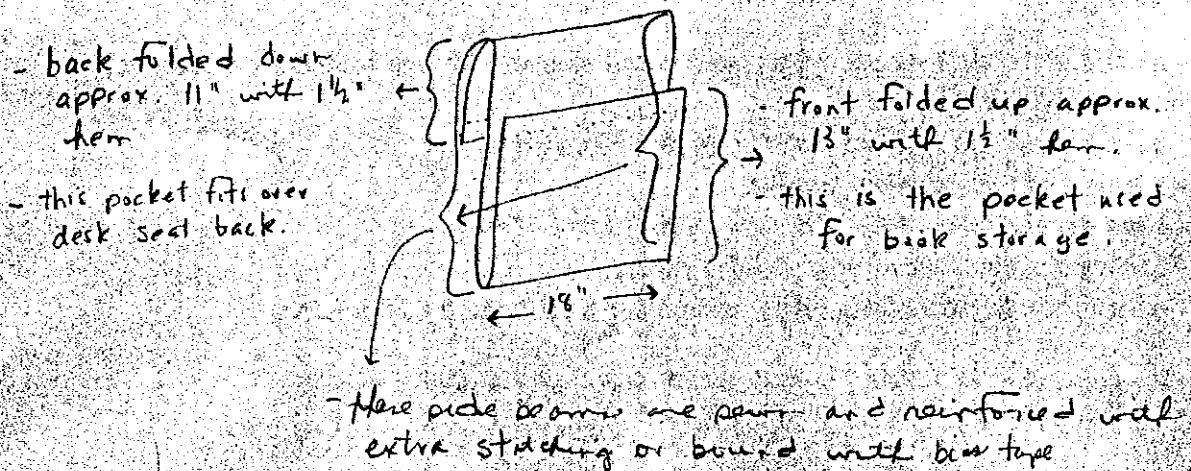 - back folded down
approx. 11" with 1½"
hem
- this pocket fits over
desk seat back.
- front folded up approx.
13" with 1½" hem.
- this is the pocket used
for book storage.
18"
- these side seams are sewn and reinforced with
extra stitching or bound with bias tape